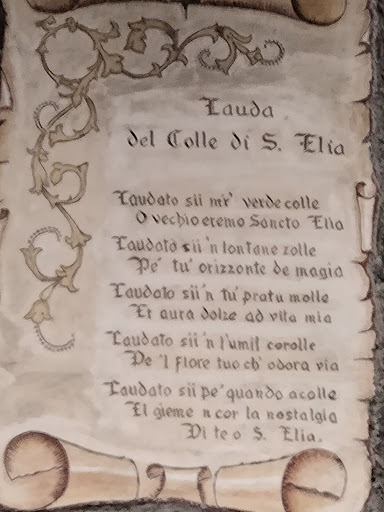 Lauda
del Colle di S. Elia
Laudato sii mi' verde colle
O vechio eremo Sancto Elia
Laudato sii 'n lontane zolle
Pe' tu' orizzonte de magia
Laudato sii 'n tu' pratu molle
Et aura dolze ad vita mia
Laudato sii 'n l'umil corolle
De 'l fiore tuo ch' odora via
Laudato sii pe' quando acolle
El gieme n cor la nostalgia
Di te o S. Elia.